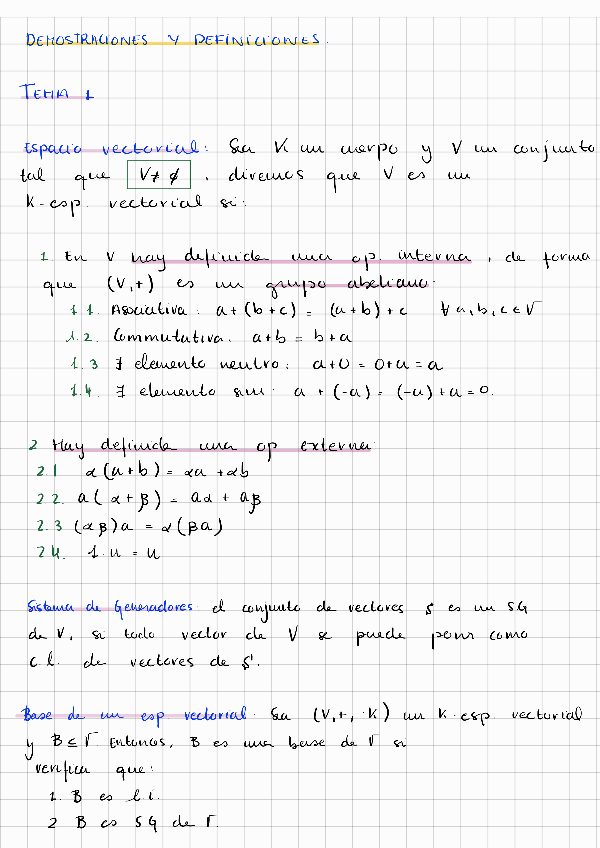 DEMOSTRACIONES Y DEFINICIONES.
TEMA 1
Espacio vectorial: Sea K un cuerpo y V un conjunto
tal que V ≠ ∅, diremos que V es un
K-esp. vectorial si:
1. En V hay definida una op. interna, de forma
que (V,+) es un grupo abeliano.
1.1. Asociativa: a+(b+c) = (a+b)+c ∀a,b,c∈V
1.2. Commutativa: a+b = b+a
1.3 ∃ elemento neutro: a+0 = 0+a = a
1.4. ∃ elemento sim: a+(-a) = (-a)+a = 0.
2 Hay definida una op externa
2.1 α(a+b) = αa + αb
2.2. a(α+β) = aα + aβ
2.3 (αβ)a = α(βa)
2.4. 1·u = u
Sistema de Generadores: el conjunto de vectores S es un SG
de V, si todo vector de V se puede poner como
c.l. de vectores de S.
Base de un esp. vectorial. Sea (V,+,·K) un K-esp. vectorial
y B ⊆ V. Entonces, B es una base de V si
verifica que:
1. B es l.i.
2 B es SG de V.